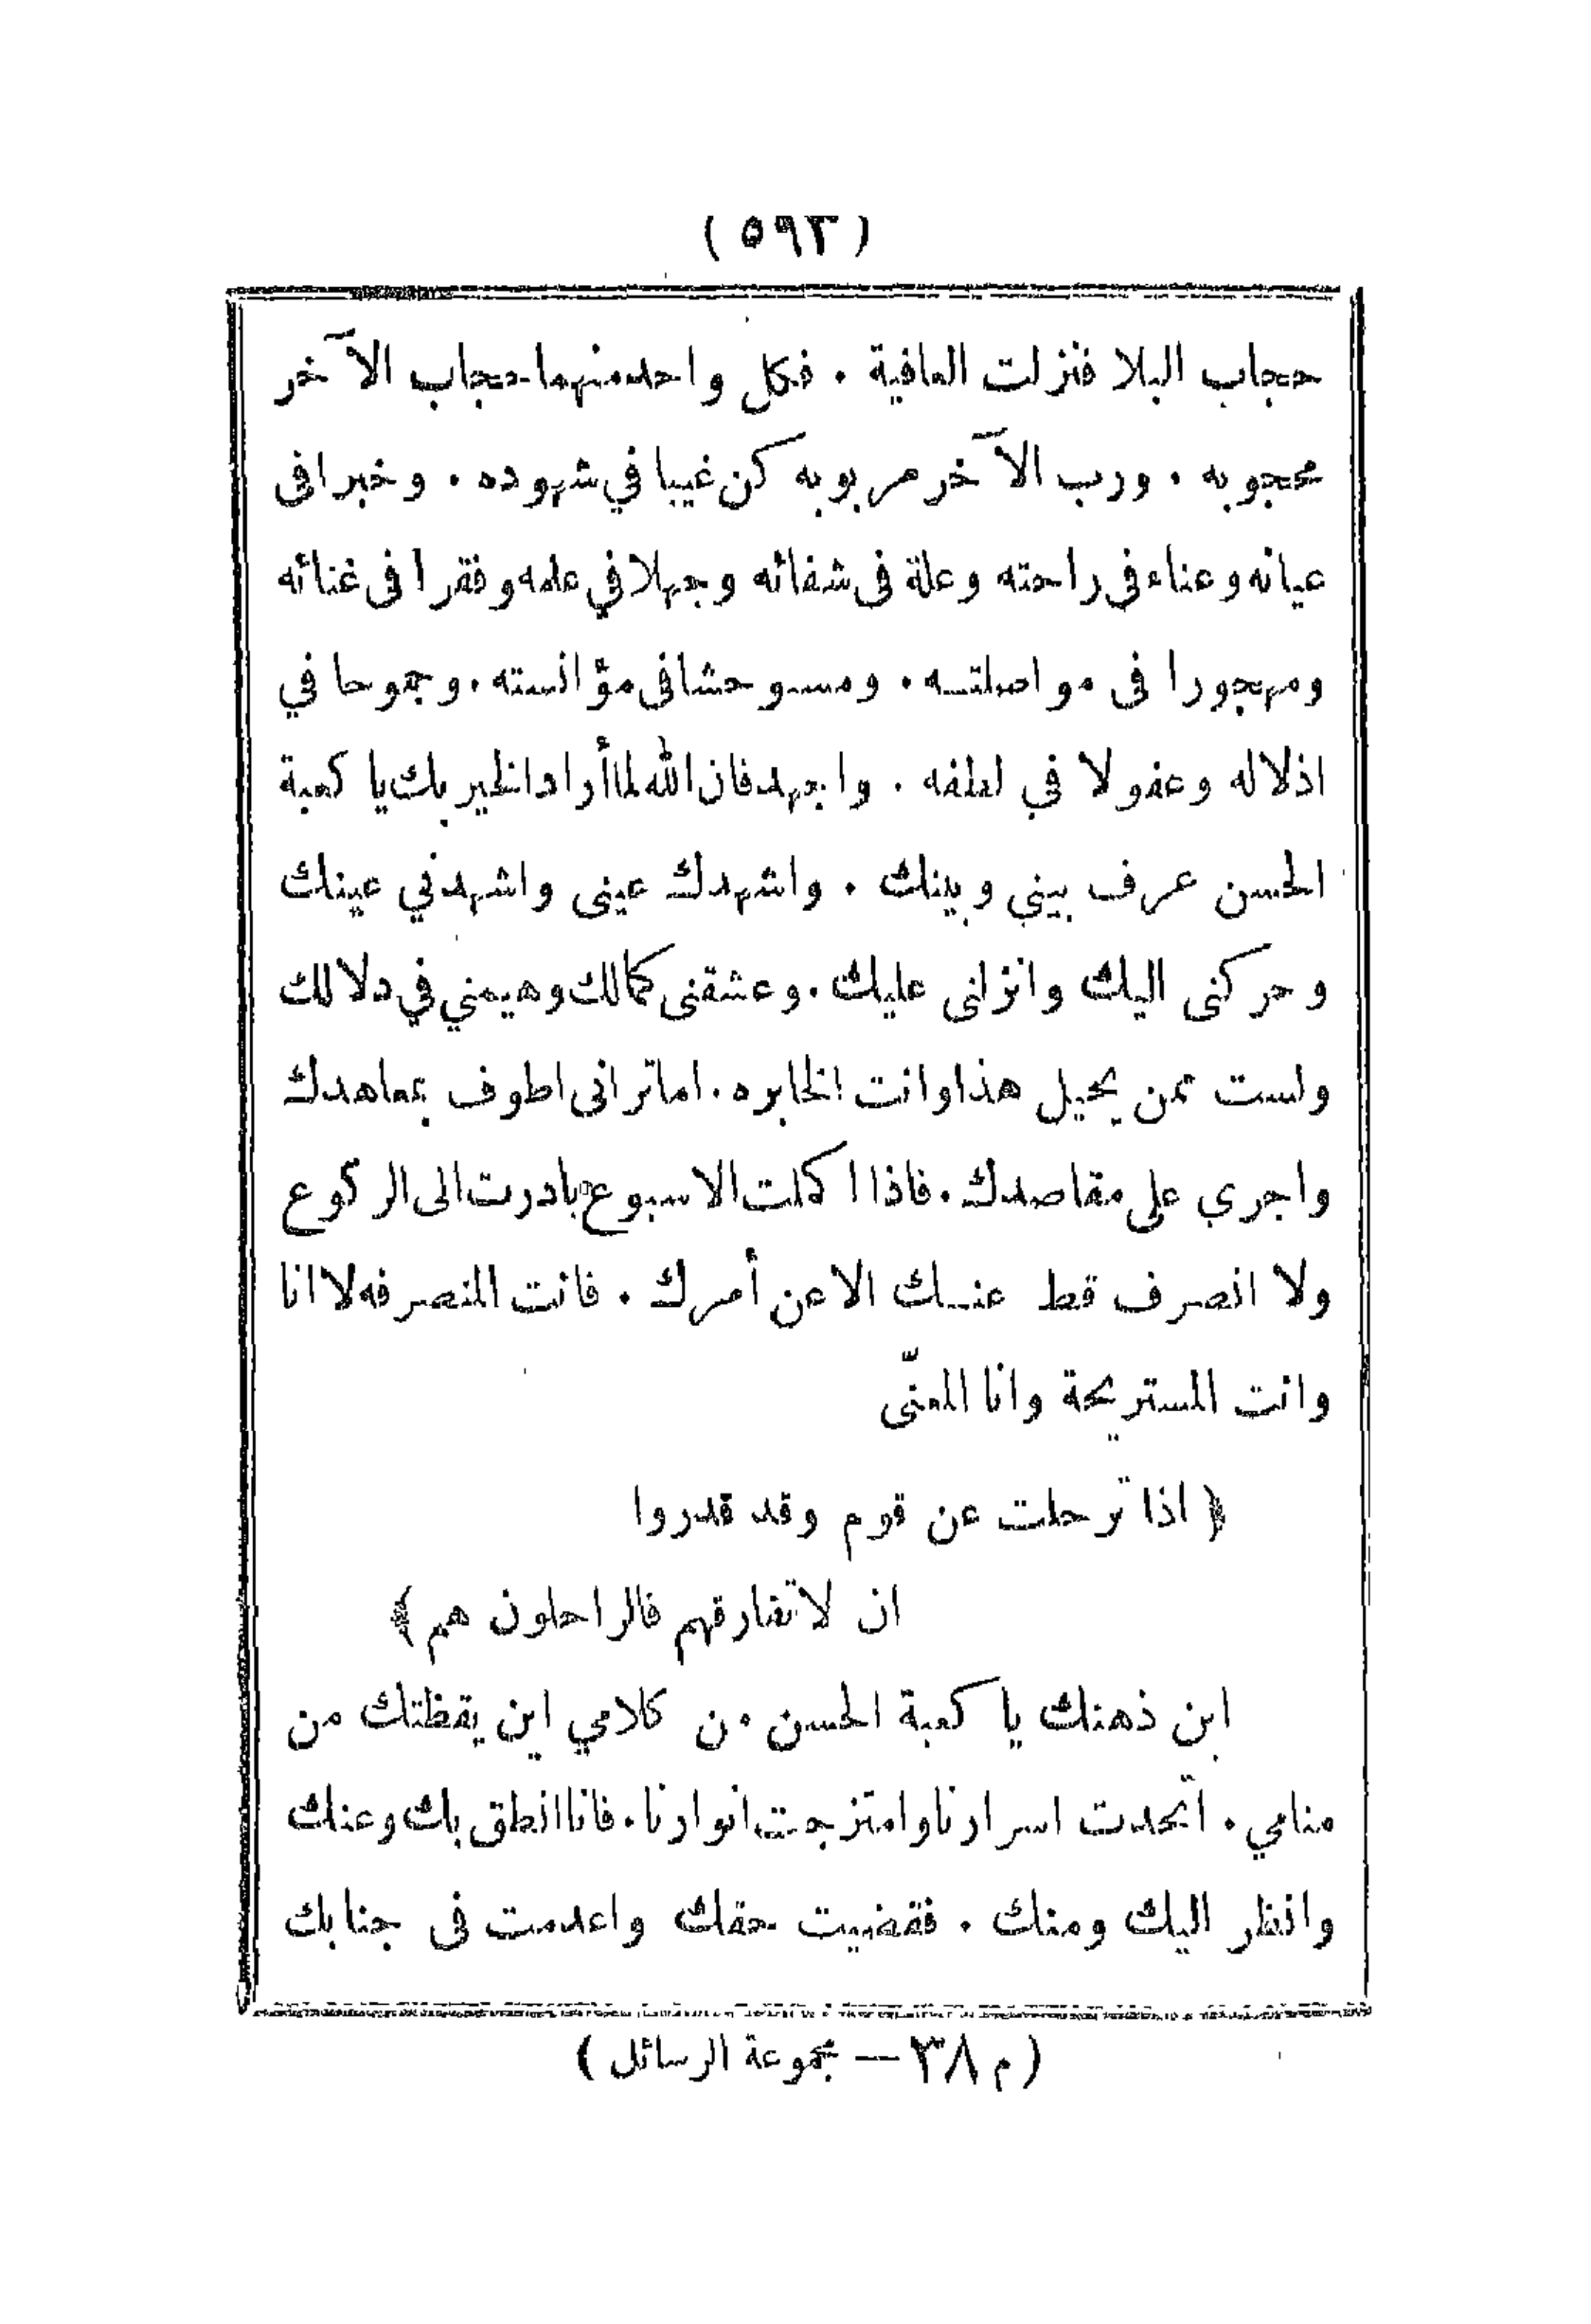 ( ٥٩٣ )
حجاب البلا فنزلت العافية . فكل واحد منهما حجاب الآخر
محجوبه . ورب الآخر مربوبه كن غيبا في شهوده . وخبرا فى
عيانه وعناء فى راحته وعلة فى شفائه وجهلا في علمه وفقرا فى غنائه
ومهجورا فى مواصلتـه . ومسـوحشا فى مؤانسته . وجموحا في
اذلاله وعفولا في لطفه . واجهد فان الله لما أراد الخير بك يا كعبة
الحسن عرف بيني وبينك . واشهدك عينى واشهدني عينك
وحركنى اليك وانزلنى عليك . وعشقنى كمالك وهيمني في دلالك
ولست ممن يحيل هذا وانت الخابره . اما ترانى اطوف بمعاهدك
واجري على مقاصدك . فاذا اكملت الاسبوع بادرت الى الركوع
ولا انصرف قط عنـك الا عن أمرك . فانت المنصرفه لا انا
وانت المستريحة وانا المعنّى
﴿ اذا ترحلت عن قوم وقد قدروا
ان لا تفارقهم فالراحلون هم ﴾
اين ذهنك يا كعبة الحسن من كلامي اين يقظتك من
منامي . اتحدت اسرارنا وامتزجت انوارنا . فانا انطق بك وعنك
وانظر اليك ومنك . فقضيت حقك واعدمت فى جنابك
( م ٣٨ — مجموعة الرسائل )